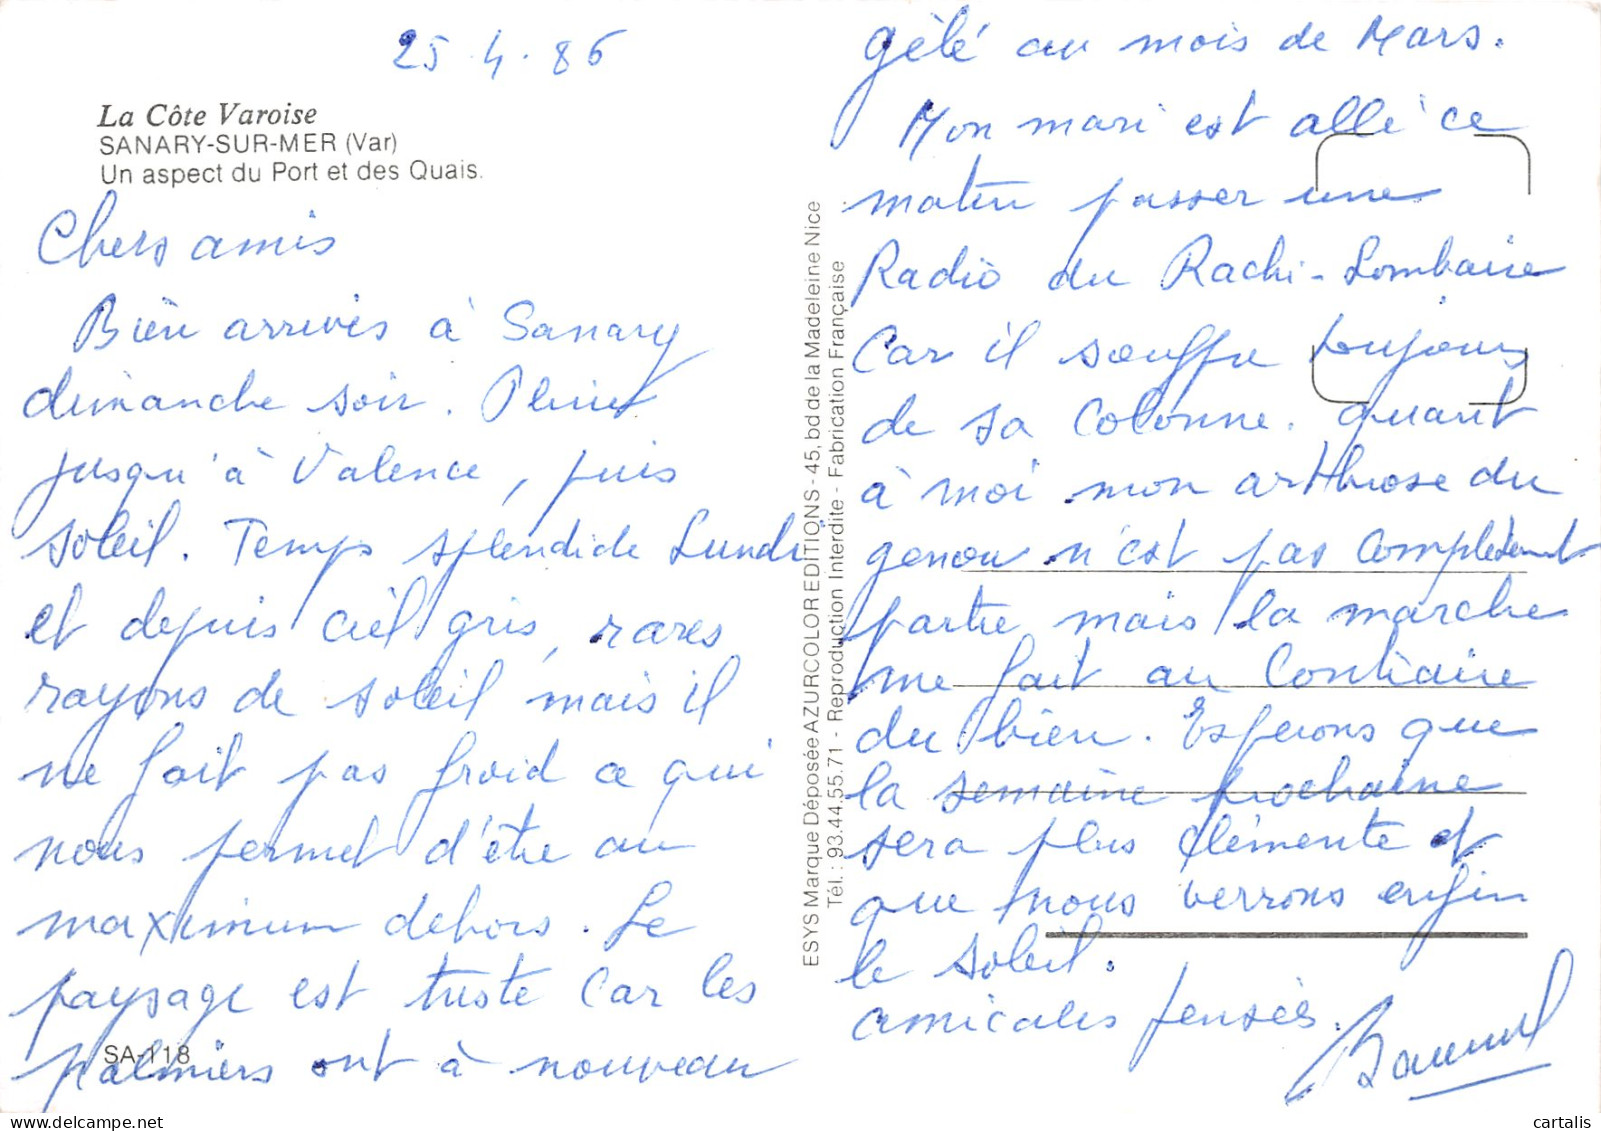 25.4.86
La Côte Varoise
SANARY-SUR-MER (Var)
Un aspect du Port et des Quais.
Chers amis
Bien arrivés à Sanary
dimanche soir. Pluie
jusqu'à Valence, puis
soleil. Temps splendide Lundi
et depuis ciel gris, rares
rayons de soleil mais il
ne fait pas froid ce qui
nous permet d'être au
maximum dehors. Le
paysage est triste car les
palmiers ont à nouveau
SA-118
ESYS Marque Déposée AZURCOLOR EDITIONS - 45, bd de la Madeleine Nice
Tél.: 93.44.55.71 - Reproduction Interdite - Fabrication Française
gêlé au mois de Mars.
Mon mari est allé ce
matin passer une
Radio du Rachi-Lombaire
Car il souffre toujours
de sa Colonne. Quant
à moi mon arthrose du
genou n'est pas complètement
partie mais la marche
me fait au Contraire
du bien. Espérons que
la semaine prochaine
sera plus clémente et
que nous verrons enfin
le soleil.
amicales pensées.